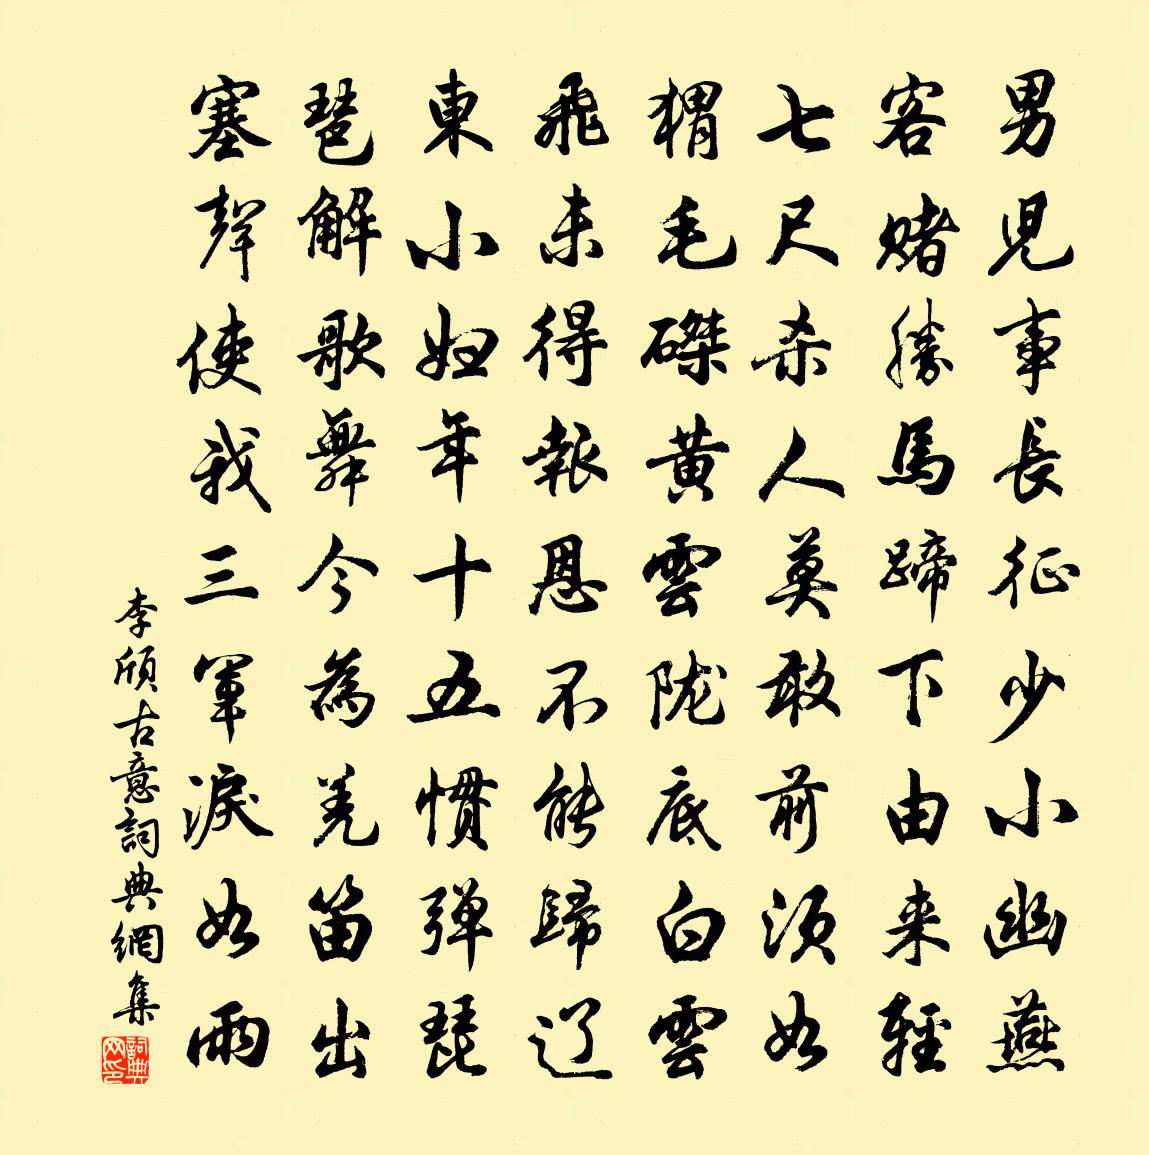 男児事長征少小幽燕
客賭勝馬蹄下由来輕
七尺杀人莫敢前須如
猬毛磔黄雲陇底白雲
飛未得報恩不能歸辽
東小婦年十五慣弹琵
琶解歌舞今為羌笛出
塞聲使我三軍淚如雨
李頎古意詞典網集
詞典网印